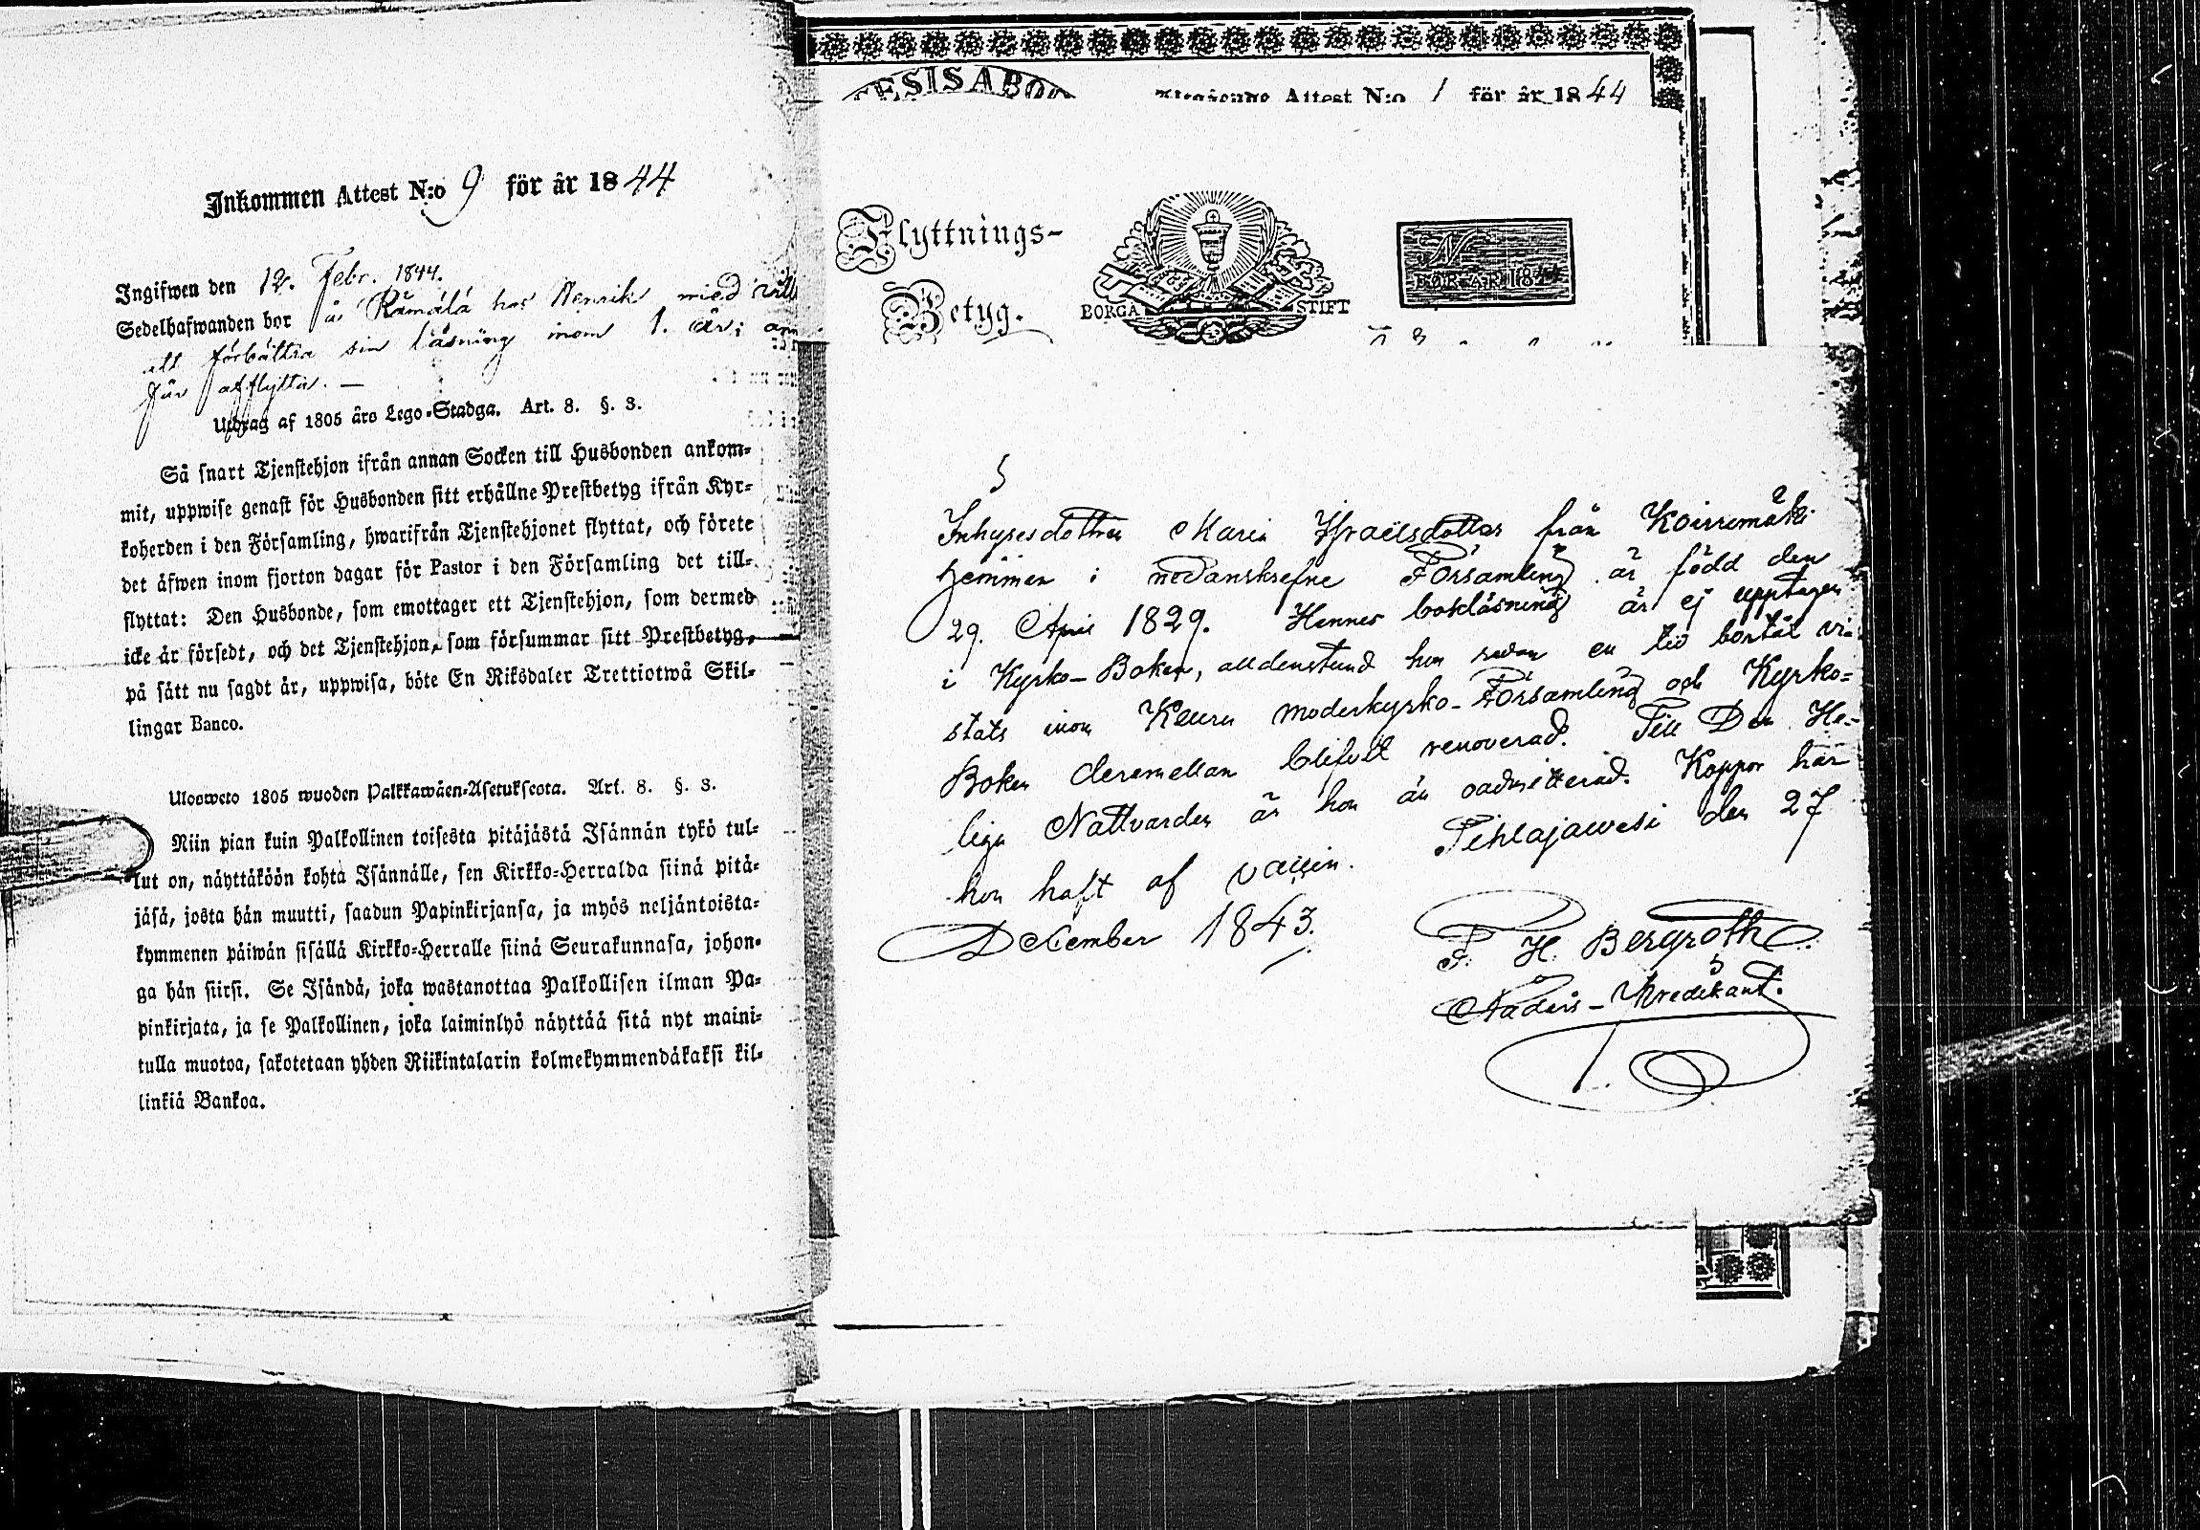 Inkommen Attest N:o 9 för år 1844
Ingifwen den 12. Febr. 1844.
Sedelhafwanden bor å Rämälä hos Henrik med vill
att förbättra sin läsning inom 1. år; ann
får afflytta. —
Utdrag af 1805 års Lego-Stadga. Art. 8. §. 3.
Så snart Tjenstehjon ifrån annan Socken till Husbonden ankom-
mit, uppwise genast för Husbonden sitt erhållne Prestbetyg ifrån Kyr-
koherden i den Församling, hwarifrån Tjenstehjonet flyttat, och förete
det äfwen inom fjorton dagar för Pastor i den Församling det till-
flyttat: Den Husbonde, som emottager ett Tjenstehjon, som dermed
icke är försedt, och det Tjenstehjon, som försummar sitt Prestbetyg,
på sätt nu sagdt är, uppwisa, böte En Riksdaler Trettiotwå Skil-
lingar Banco.
Ulosweto 1805 wuoden Palkkawäen-Asetuksesta. Art. 8. §. 3.
Niin pian kuin Palkollinen toisesta pitäjästä Isännän tykö tul-
lut on, näyttäköön kohta Isännälle, sen Kirkko-Herralda siinä pitä-
jäsä, josta hän muutti, saadun Papinkirjansa, ja myös neljäntoista-
kymmenen päiwän sisällä Kirkko-Herralle siinä Seurakunnasa, johon-
ga hän siirsi. Se Isändä, joka wastanottaa Palkollisen ilman Pa-
pinkirjata, ja se Palkollinen, joka laiminlyö näyttää sitä nyt maini-
tulla muotoa, sakotetaan yhden Riikintalarin kolmekymmendäkaksi kil-
linkiä Bankoa.
ESIS ABO
Attest N:o 1 för år 1844
Flyttnings-
Betyg.
BORGÅ STIFT
N
FÖR ÅR 1844
Inhysesdottren Maria Israëlsdotter från Koiremäki
hemman i nedanskrefne Församling är född den
29. April 1829. Hennes bokläsning är ej upptagen
i Kyrko-Boken, alldenstund hon redan en tid bortåt vi-
stats inom Keuru moderkyrko-Församling och Kyrko-
Boken deremellan blifvit renoverad. Till Den He-
liga Nattvarden är hon än oadmitterad. Koppor har
hon haft af vaccin. Pihlajawesi den 27
December 1843.
F. H. Bergroth.
Nådårs-Predikant.